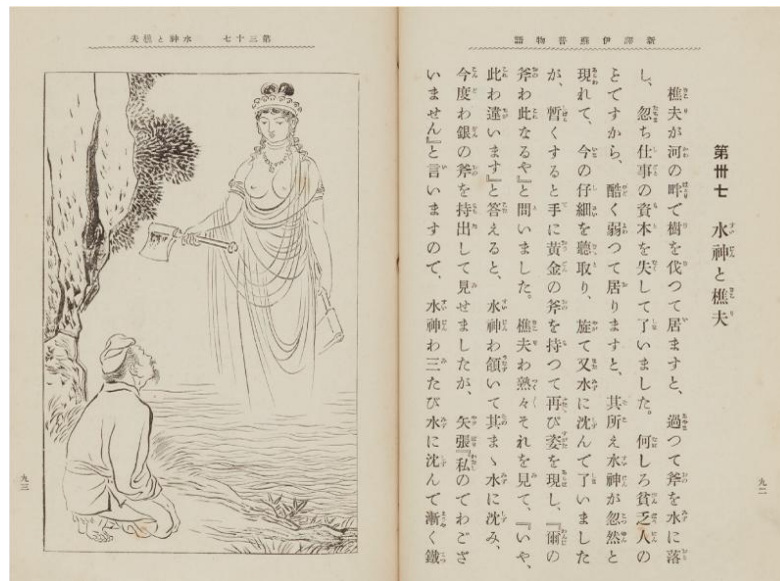 新譯伊蘇普物語
第卅七 水神と樵夫
樵夫が河の畔で樹を伐つて居ますと、過つて斧を水に落
し、忽ち仕事の資本を失して了いました。何しろ貧乏人の
とですから、酷く弱つて居りますと、其所え水神が忽然と
現れて、今の仔細を聽取り、旋て又水に沈んで了いました
が、暫くすると手に黄金の斧を持つて再び姿を現し、『爾の
斧わ此なるや』と問いました。樵夫わ熟々それを見て、『いや、
此わ違います』と答えると、水神わ頷いて其まゝ水に沈み、
今度わ銀の斧を持出して見せましたが、矢張『私のでわござ
いません』と言いますので、水神わ三たび水に沈んで漸く鐵
九二
第三十七 水神と樵夫
九三